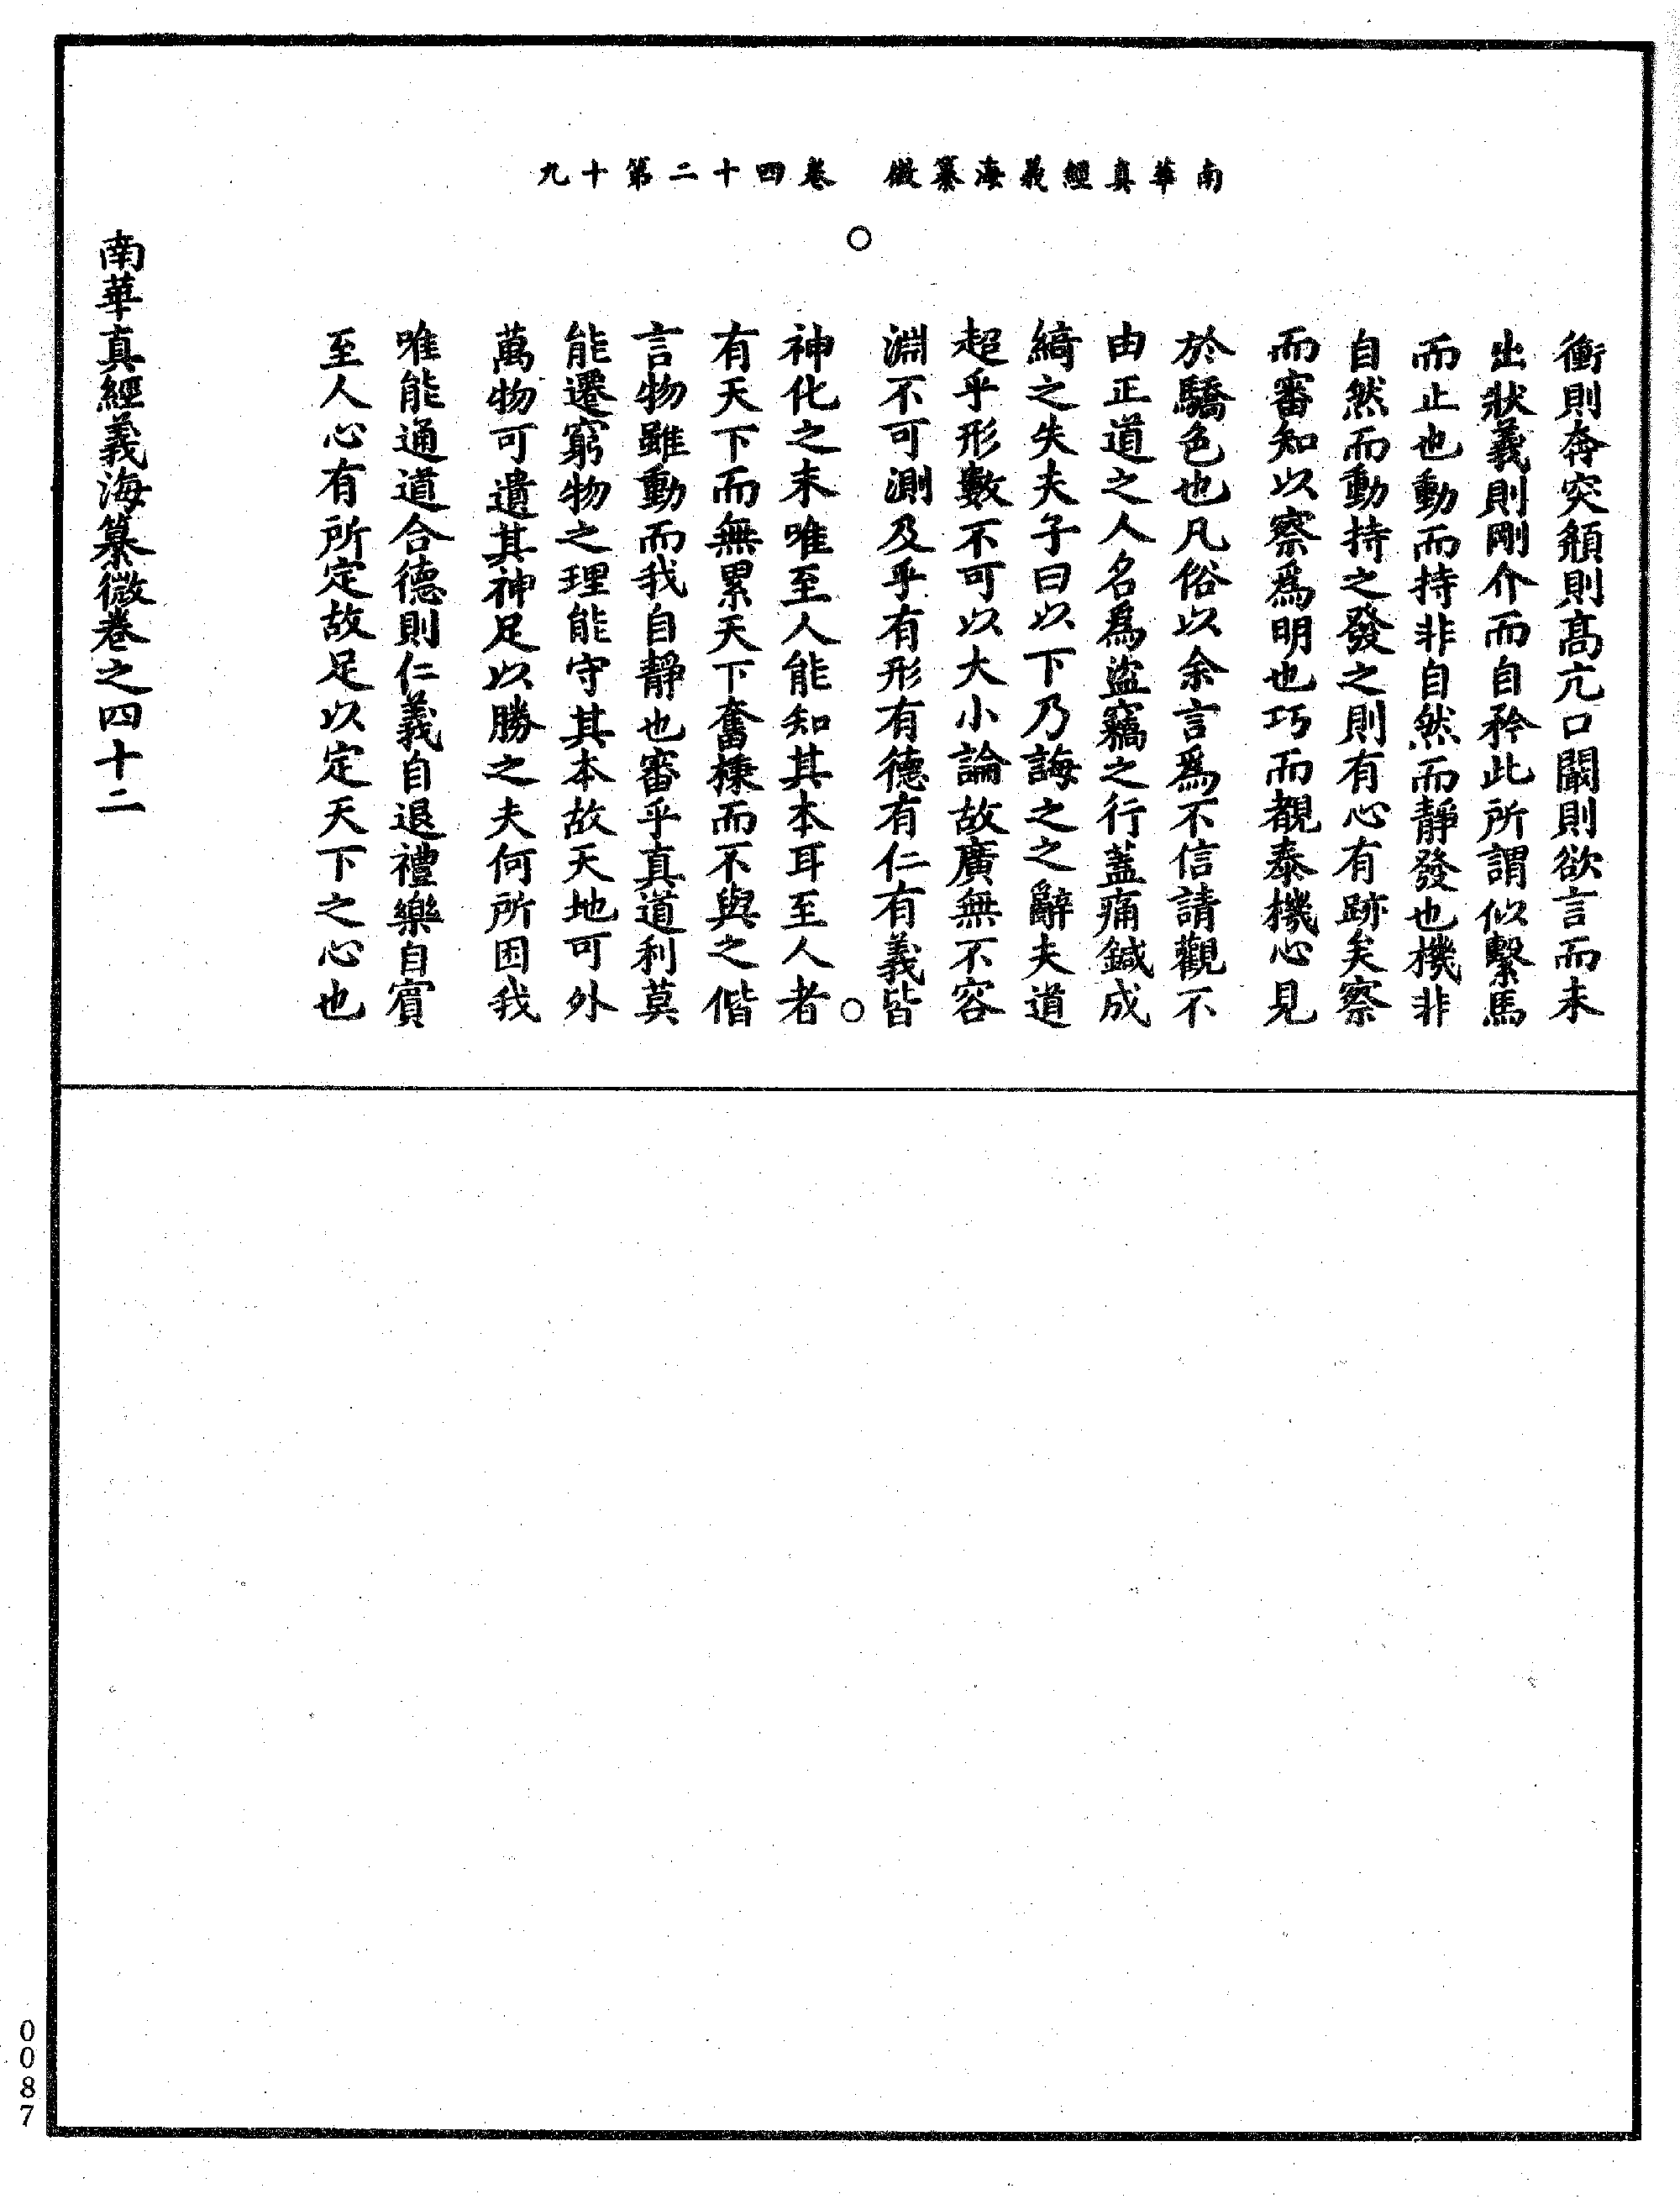 南華真經義海纂微　卷四十二第十九
衝則奔突頯則高亢口闞則欲言而未
出狀義則剛介而自矜此所謂似繫馬
而止也動而持非自然而靜發也機非
自然而動持之發之則有心有跡矣察
而審知以察爲明也巧而覩泰機心見
於驕色也凡俗以余言爲不信請觀不
由正道之人名爲盜竊之行蓋痛鍼成
綺之失夫子曰以下乃誨之之辭夫道
超乎形數不可以大小論故廣無不容
淵不可測及乎有形有德有仁有義皆
神化之末唯至人能知其本耳至人者
有天下而無累天下奮棅而不與之偕
言物雖動而我自靜也審乎真道利莫
能遷窮物之理能守其本故天地可外
萬物可遺其神足以勝之夫何所困我
唯能通道合德則仁義自退禮樂自賓
至人心有所定故足以定天下之心也
南華真經義海纂微卷之四十二
0087